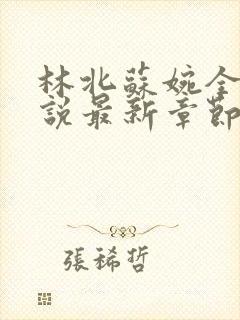 林北蘇婉全
說最新章節
張稀哲